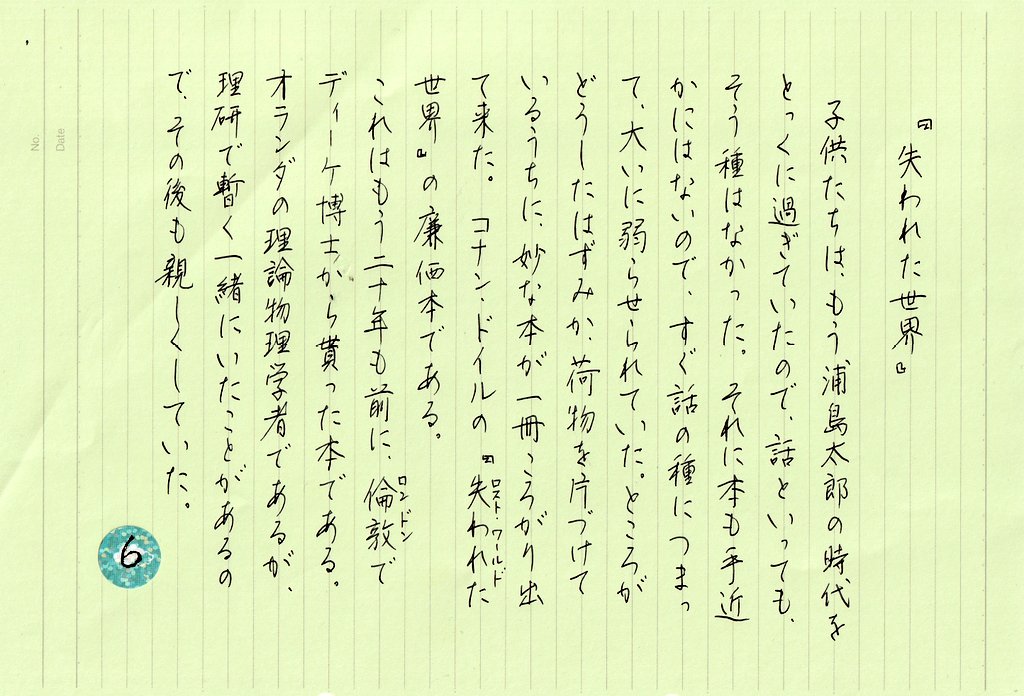 『失われた世界』
子供たちは、もう浦島太郎の時代を
とっくに過ぎていたので、話といっても、
そう種はなかった。それに本も手近
かにはないので、すぐ話の種につまっ
て、大いに弱らせられていた。ところが
どうしたはずみか、荷物を片づけて
いるうちに、妙な本が一冊ころがり出
て来た。コナン・ドイルの『失われた
ロスト・ワールド
世界』の廉価本である。
これはもう二十年も前に、倫敦で
ロンドン
ディーケ博士から貰った本である。
オランダの理論物理学者であるが、
理研で暫く一緒にいたことがあるの
で、その後も親しくしていた。
6
No.
Date